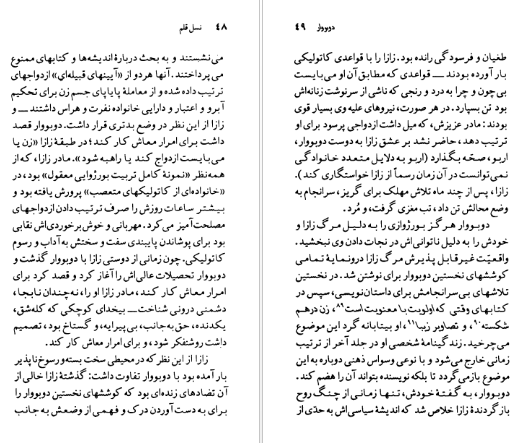 ۴۸ نسل قلم
می‌نشستند و به بحث دربارهٔ اندیشه‌ها و کتابهای ممنوع
می‌پرداختند. آنها هر دو از «آیینهای قبیله‌ای» ازدواجهای
ترتیب داده شده و از معاملهٔ پایاپای جسم زن برای تحکیم
آبرو و اعتبار و دارایی خانواده نفرت و هراس داشتند — و
زازا از این نظر در وضع بدتری قرار داشت. دوبووار قصد
داشت برای امرار معاش کار کند؛ در طبقهٔ زازا «زن یا
می‌بایست ازدواج کند یا راهبه شود». مادر زازا، که از
همه‌نظر «نمونهٔ کامل تربیت بورژوایی معقول» بود، در
«خانواده‌ای از کاتولیکهای متعصب» پرورش یافته بود و
بیشتر ساعات روزش را صرف ترتیب دادن ازدواجهای
مصلحت‌آمیز می‌کرد. مهربانی و خوش‌برخوردی‌اش نقابی
بود برای پوشاندن پایبندی سفت و سختش به آداب و رسوم
کاتولیکی. چون زمانی از دوستی زازا با دوبووار گذشت و
دوبووار تحصیلات عالی‌اش را آغاز کرد و قصد کرد برای
امرار معاش کار کند، مادر زازا او را، نه‌چندان نابجا،
دشمنی درونی شناخت — بیخدای کوچکی که کله‌شق،
یکدنده، حق‌به‌جانب، بی‌پیرایه، و گستاخ بود، تصمیم
داشت روشنفکر شود، و برای امرار معاش کار کند.
زازا از این نظر که در محیطی سخت بسته و رسوخ‌ناپذیر
بار آمده بود با دوبووار تفاوت داشت: گذشتهٔ زازا خالی از
آن تضادهای زنده‌ای بود که کوششهای نخستین دوبووار را
برای به دست آوردن درک و فهمی از وضعش به جانب
دوبووار ۴۹
طغیان و فرسودگی رانده بود. زازا را با قواعدی کاتولیکی
بار آورده بودند — قواعدی که مطابق آن او می‌بایست
بی‌چون و چرا به درد و رنجی که ناشی از سرنوشت زنانه‌اش
بود تن بسپارد. در هر صورت، نیروهای علیه وی بسیار قوی
بودند: مادر عزیزش، که میل داشت ازدواجی پرسود برای او
ترتیب دهد، حاضر نشد بر عشق زازا به دوست دوبووار،
اربو، صحّه بگذارد (اربو به دلایل متعدد خانوادگی
نمی‌توانست در آن زمان رسماً از زازا خواستگاری کند).
زازا، پس از چند ماه تلاش مهلک برای گریز، سرانجام به
وضع محالش تن داد، تب مغزی گرفت، و مُرد.
دوبووار هرگز بورژوازی را به دلیل مرگ زازا و
خودش را به دلیل ناتوانی‌اش در نجات دادن وی نبخشید.
واقعیّت غیرقابل‌پذیرش مرگ زازا درونمایهٔ تمامی
کوششهای نخستین دوبووار برای نوشتن شد. در نخستین
تلاشهای بی‌سرانجامش برای داستان‌نویسی، سپس در
کتابهای وقتی که اولویت با معنویت است، زن درهم
شکسته، و تصاویر زیبا، او بیتابانه گرد این موضوع
می‌چرخید. زندگینامهٔ شخصی او در جلد آخر از ترتیب
زمانی خارج می‌شود و با نوعی وسواس ذهنی دوباره به این
موضوع بازمی‌گردد تا بلکه نویسنده بتواند آن را هضم کند.
دوبووار، به گفتهٔ خودش، تنها زمانی از چنگ روح
بازگردندهٔ زازا خلاص شد که اندیشهٔ سیاسی‌اش به حدّی از